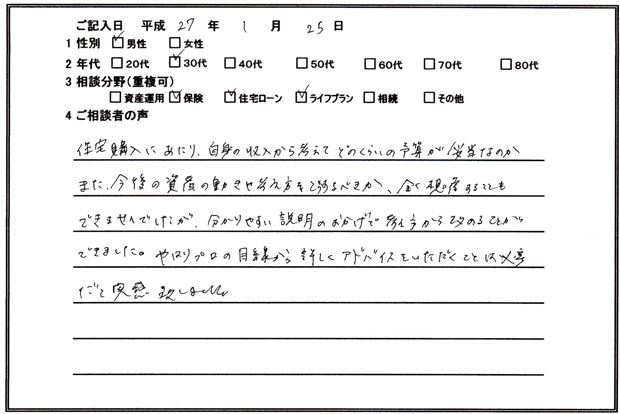 ご記入日 平成 27 年 1 月 25 日
1 性別 ☑男性 □女性
2 年代 □20代 ☑30代 □40代 □50代 □60代 □70代 □80代
3 相談分野(重複可)
□資産運用 ☑保険 ☑住宅ローン ☑ライフプラン □相続 □その他
4 ご相談者の声
住宅購入にあたり、自身の収入から考えてどのくらいの予算が妥当なのか
また、今後の資産の動きや考え方をどうするべきか、全く想像することも
できませんでしたが、分かりやすい説明のおかげで考え方から改めることが
できました。やはりプロの目線から詳しくアドバイスをいただくことは必要
だと実感致しました